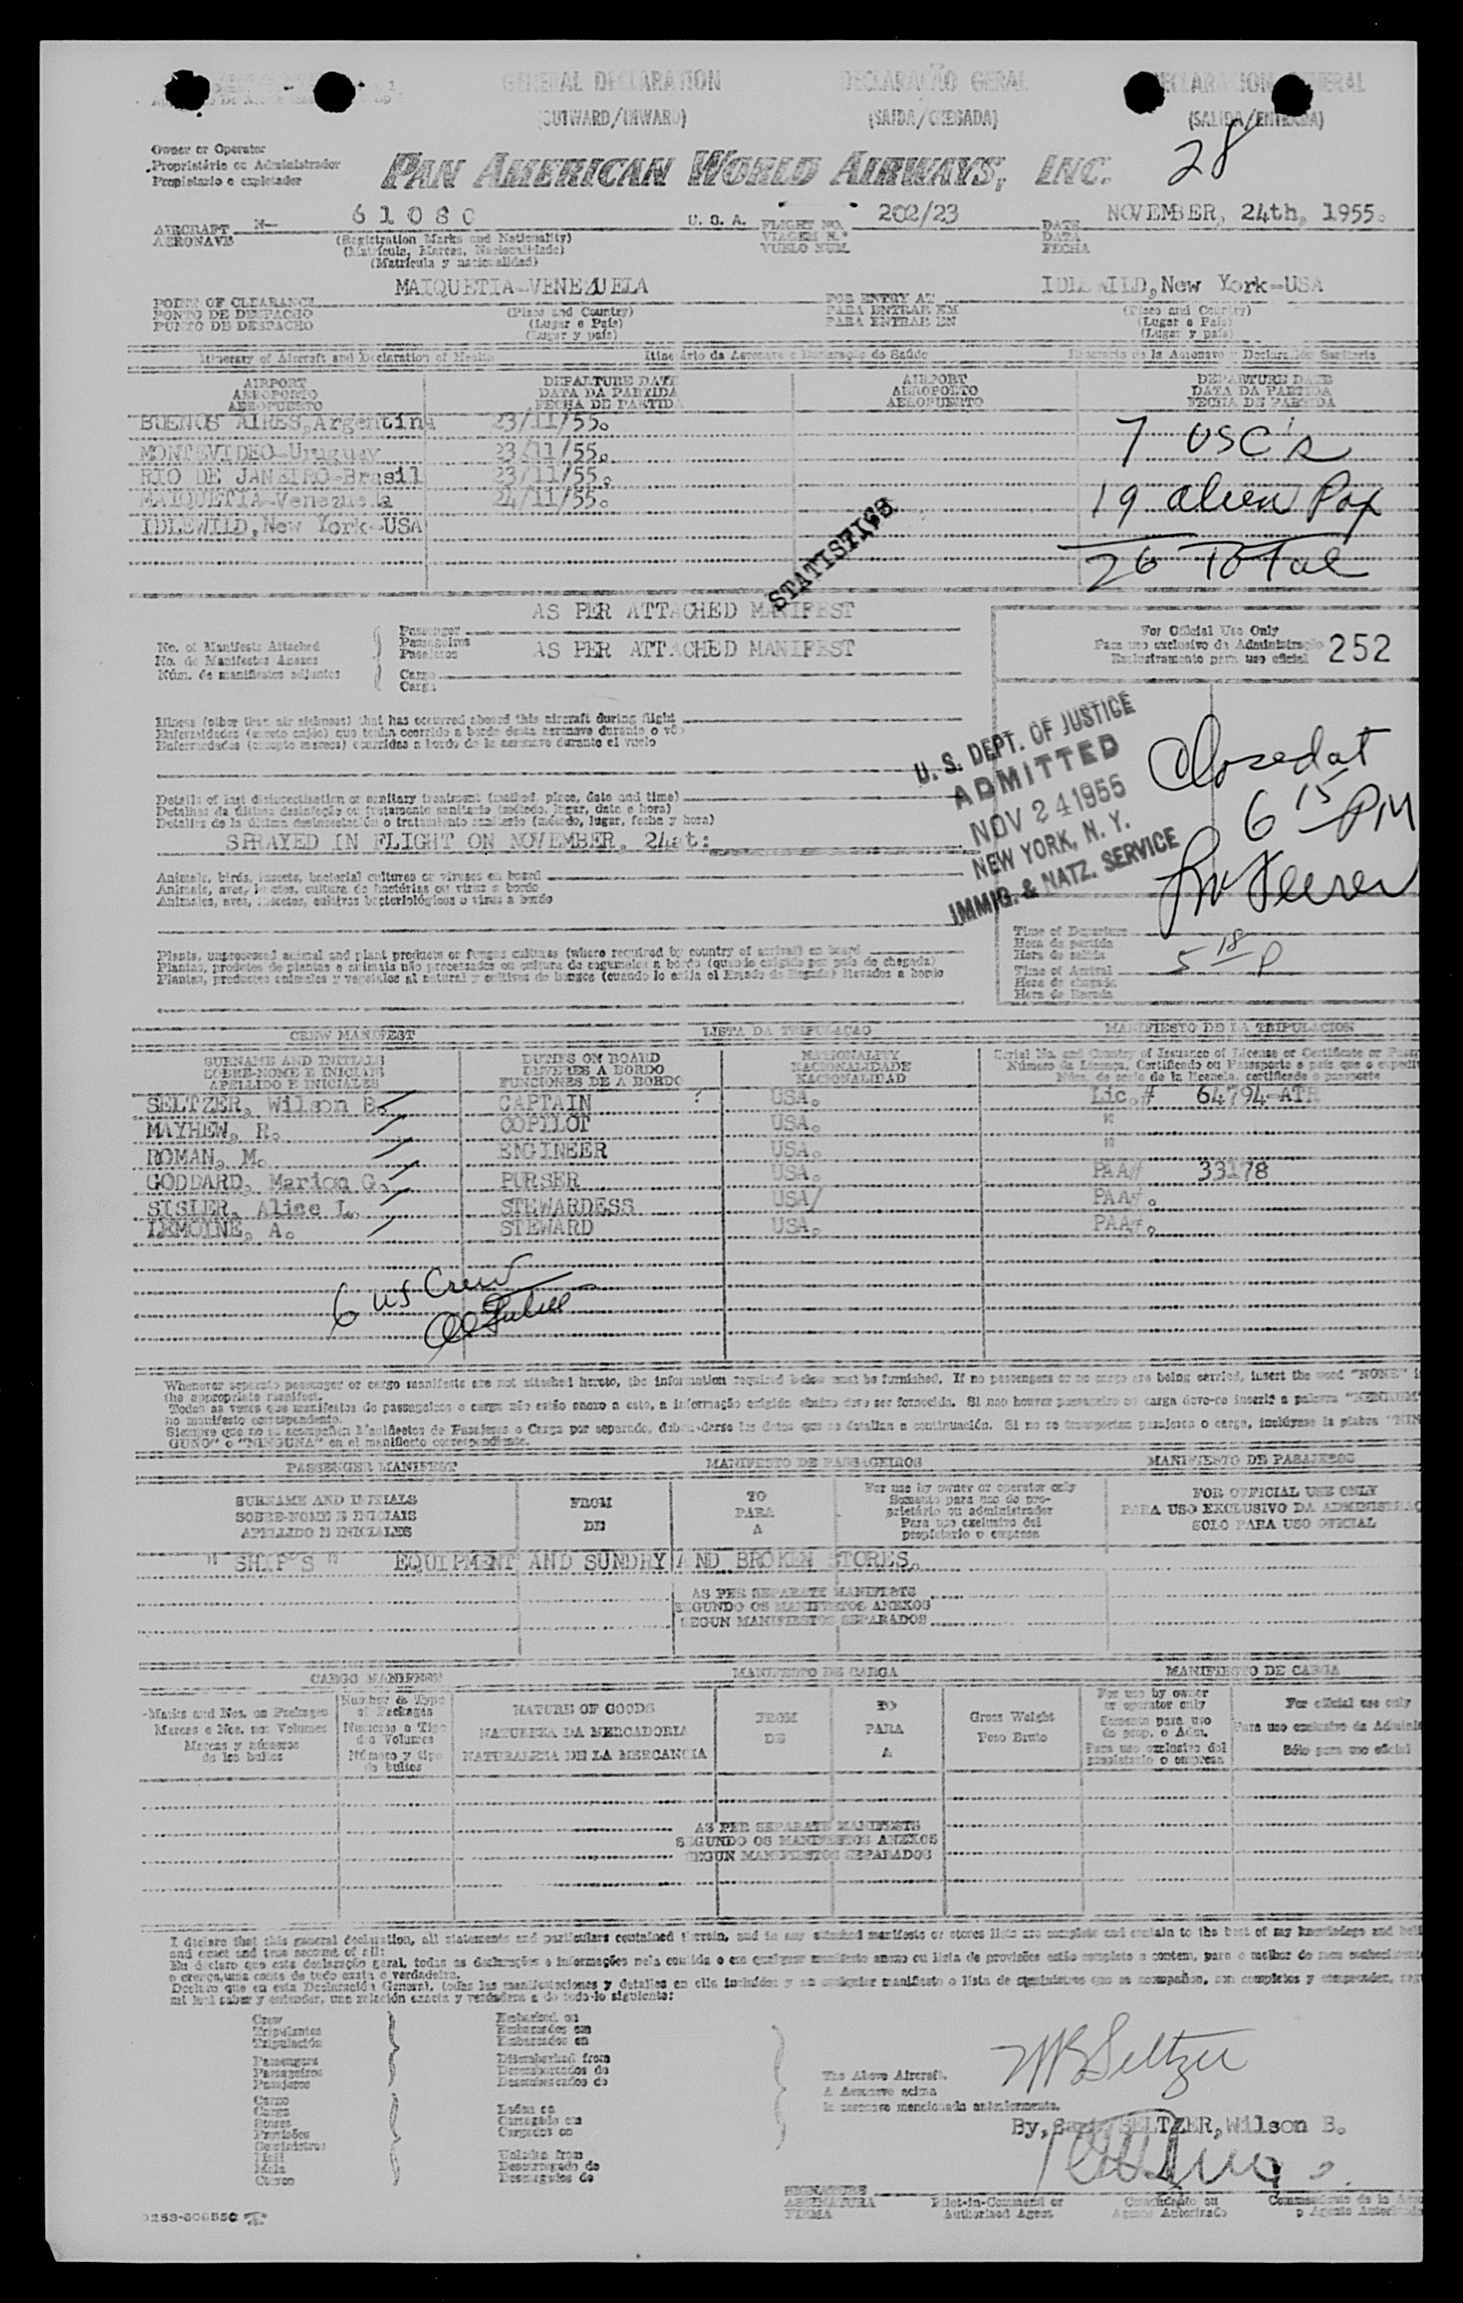 GENERAL DECLARATION DECLARAÇÃO GERAL DECLARACION GENERAL
(OUTWARD/INWARD) (SAIDA/CHEGADA) (SALIDA/ENTRADA)
28
Owner or Operator
Proprietário ou Administrador
Propietario o explotador
PAN AMERICAN WORLD AIRWAYS, INC.
AIRCRAFT N- 61080 U. S. A. FLIGHT NO. 202/23 DATE NOVEMBER, 24th, 1955.
AERONAVE (Registration Marks and Nationality) VIAGEM N.º DATA
(Matrícula, Marcas, Nacionalidade) VUELO NUM. FECHA
(Matrícula y nacionalidad)
POINT OF CLEARANCE MAIQUETIA-VENEZUELA FOR ENTRY AT IDLEWILD, New York-USA
PONTO DE DESPACHO (Place and Country) PARA ENTRAR EM (Place and Country)
PUNTO DE DESPACHO (Lugar e País) PARA ENTRAR EN (Lugar e País)
(Lugar y país) (Lugar y país)
Itinerary of Aircraft and Declaration of Health Itinerário da Aeronave e Declaração de Saúde Itinerario de la Aeronave y Declaración Sanitaria
AIRPORT DEPARTURE DATE AIRPORT DEPARTURE DATE
AEROPORTO DATA DA PARTIDA AEROPORTO DATA DA PARTIDA
AEROPUERTO FECHA DE PARTIDA AEROPUERTO FECHA DE PARTIDA
BUENOS AIRES, Argentina 23/11/55.
MONTEVIDEO-Uruguay 23/11/55.
RIO DE JANEIRO-Brasil 23/11/55.
MAIQUETIA-Venezuela 24/11/55.
IDLEWILD, New York-USA
7 USC's
19 alien Pax
26 Total
STATISTICS
No. of Manifests Attached
No. de Manifestos Anexos
Núm. de manifiestos adjuntos
Passenger AS PER ATTACHED MANIFEST
Passageiros
Pasajeros
Cargo AS PER ATTACHED MANIFEST
Carga
For Official Use Only
Para uso exclusivo da Administração
Exclusivamente para uso oficial
252
Illness (other than air sickness) that has occurred aboard this aircraft during flight
Enfermidades (exceto enjôo) que tenha ocorrido a bordo desta aeronave durante o vôo
Enfermedades (excepto mareos) ocurridas a bordo de la aeronave durante el vuelo
U. S. DEPT. OF JUSTICE
ADMITTED
NOV 24 1955
NEW YORK, N. Y.
IMMIG. & NATZ. SERVICE
Closed at
6 15 PM
Details of last disinsectization or sanitary treatment (method, place, date and time)
Detalhes da última desinfeção ou tratamento sanitário (método, lugar, data e hora)
Detalles de la última desinsectación o tratamiento sanitario (método, lugar, fecha y hora)
SPRAYED IN FLIGHT ON NOVEMBER, 24at:
Animals, birds, insects, bacterial cultures or viruses on board
Animais, aves, insetos, cultura de bactérias ou virus a bordo
Animales, aves, insectos, cultivos bacteriológicos o virus a bordo
Plants, unprocessed animal and plant products or fungus cultures (where required by country of arrival) on board
Plantas, produtos de plantas e animais não processados ou cultura de cogumelos a bordo (quando exigido por país de chegada)
Plantas, productos animales y vegetales al natural y cultivos de hongos (cuando lo exija el Estado de llegada) llevados a bordo
Time of Departure
Hora da partida
Hora de salida
Time of Arrival 5 18 P
Hora de chegada
Hora de llegada
CREW MANIFEST LISTA DA TRIPULAÇÃO MANIFIESTO DE LA TRIPULACION
SURNAME AND INITIALS DUTIES ON BOARD NATIONALITY Serial No. and Country of Issuance of License or Certificate or
SOBRE-NOME E INICIAIS DEVERES A BORDO NACIONALIDADE Número da Licença, Certificado ou Passaporte e país que o
APELLIDO E INICIALES FUNCIONES DE A BORDO NACIONALIDAD Núm. de serie de la licencia, certificado o pasaporte
SELTZER, Wilson B. CAPTAIN USA. Lic.# 64794-ATR
MAYHEW, R. COPILOT USA. "
ROMAN, M. ENGINEER USA. "
GODDARD, Marion G. PURSER USA. PAA# 33178
SISLER, Alice L. STEWARDESS USA/ PAA#.
LEMOINE, A. STEWARD USA. PAA#.
6 US Crew
Whenever separate passenger or cargo manifests are not attached hereto, the information required below must be furnished. If no passengers or no cargo are being carried, insert the word "NONE" in
the appropriate manifest.
Todas as vezes que manifestos de passageiros e carga não estão anexo a este, a informação exigida abaixo deve ser fornecida. Si nao houver passageiro ou carga deve-se inserir a palavra "NENHUM"
no manifesto correspondente.
Siempre que no se acompañen Manifiestos de Pasajeros o Carga por separado, deben darse los datos que se detallan a continuación. Si no se transportan pasajeros o carga, inclúyase la plabra "NIN
GUNO" o "NINGUNA" en el manifiesto correspondiente.
PASSENGER MANIFEST MANIFESTO DE PASSAGEIROS MANIFIESTO DE PASAJEROS
SURNAME AND INITIALS FROM TO For use by owner or operator only FOR OFFICIAL USE ONLY
SOBRE-NOME E INICIAIS DE PARA Somente para uso de pro- PARA USO EXCLUSIVO DA
APELLIDO E INICIALES A prietário ou administrador SOLO PARA USO OFICIAL
Para uso exclusivo del
propietario o empresa
" SHIP'S " EQUIPMENT AND SUNDRY AND BROKEN STORES.
AS PER SEPARATE MANIFESTS
SEGUNDO OS MANIFESTOS ANEXOS
SEGUN MANIFIESTOS SEPARADOS
CARGO MANIFEST MANIFESTO DE CARGA MANIFIESTO DE CARGA
Marks and Nos. on Packages Number & Type of Packages NATURE OF GOODS FROM TO Gross Weight For use by owner or operator only For official use only
Marcas e Nos. nos Volumes Numeros e Tipo dos Volumes NATUREZA DA MERCADORIA DE PARA Peso Bruto Somente para uso do prop. o Adm. Para uso exclusivo da
Marcas y números de los bultos Número y tipo de bultos NATURALEZA DE LA MERCANCIA A Para uso exclusivo del propietario o empresa Sólo para uso oficial
AS PER SEPARATE MANIFESTS
SEGUNDO OS MANIFESTOS ANEXOS
SEGUN MANIFIESTOS SEPARADOS
I declare that this general declaration, all statements and particulars contained therein, and in any attached manifests or stores lists are complete and contain to the best of my knowledge and
and exact and true account of all:
Eu declaro que esta declaração geral, todas as declarações e informações nela contida e em qualquer manifesto anexo ou lista de provisões estão completo e contem, para o melhor do meu
e crença, uma conta de tudo exata e verdadeira.
Declaro que en esta Declaración General, todas las manifestaciones y detalles en ella incluídos y en cualquier manifiesto o lista de suministros que se acompañan, son completos y comprenden,
mi leal saber y entender, una relación exacta y verdadera de todo lo siguiente:
Crew Embarked on
Tripulantes Embarcados em
Tripulación Embarcados en
Passengers Disembarked from
Passageiros Desembarcados de
Pasajeros Desembarcados de
Cargo Laden on
Carga Carregado em
Stores Cargados en
Provisões
Suministros
Mail Unladen from
Mala Descarregado de
Correo Descargados de
The Above Aircraft.
A Aeronave acima
la aeronave mencionada anteriormente.
WB Seltzer
By, SELTZER, Wilson B.
SIGNATURE
ASSINATURA Pilot-in-Command or Comandante ou
FIRMA Authorized Agent Agente Autorizado o Agente